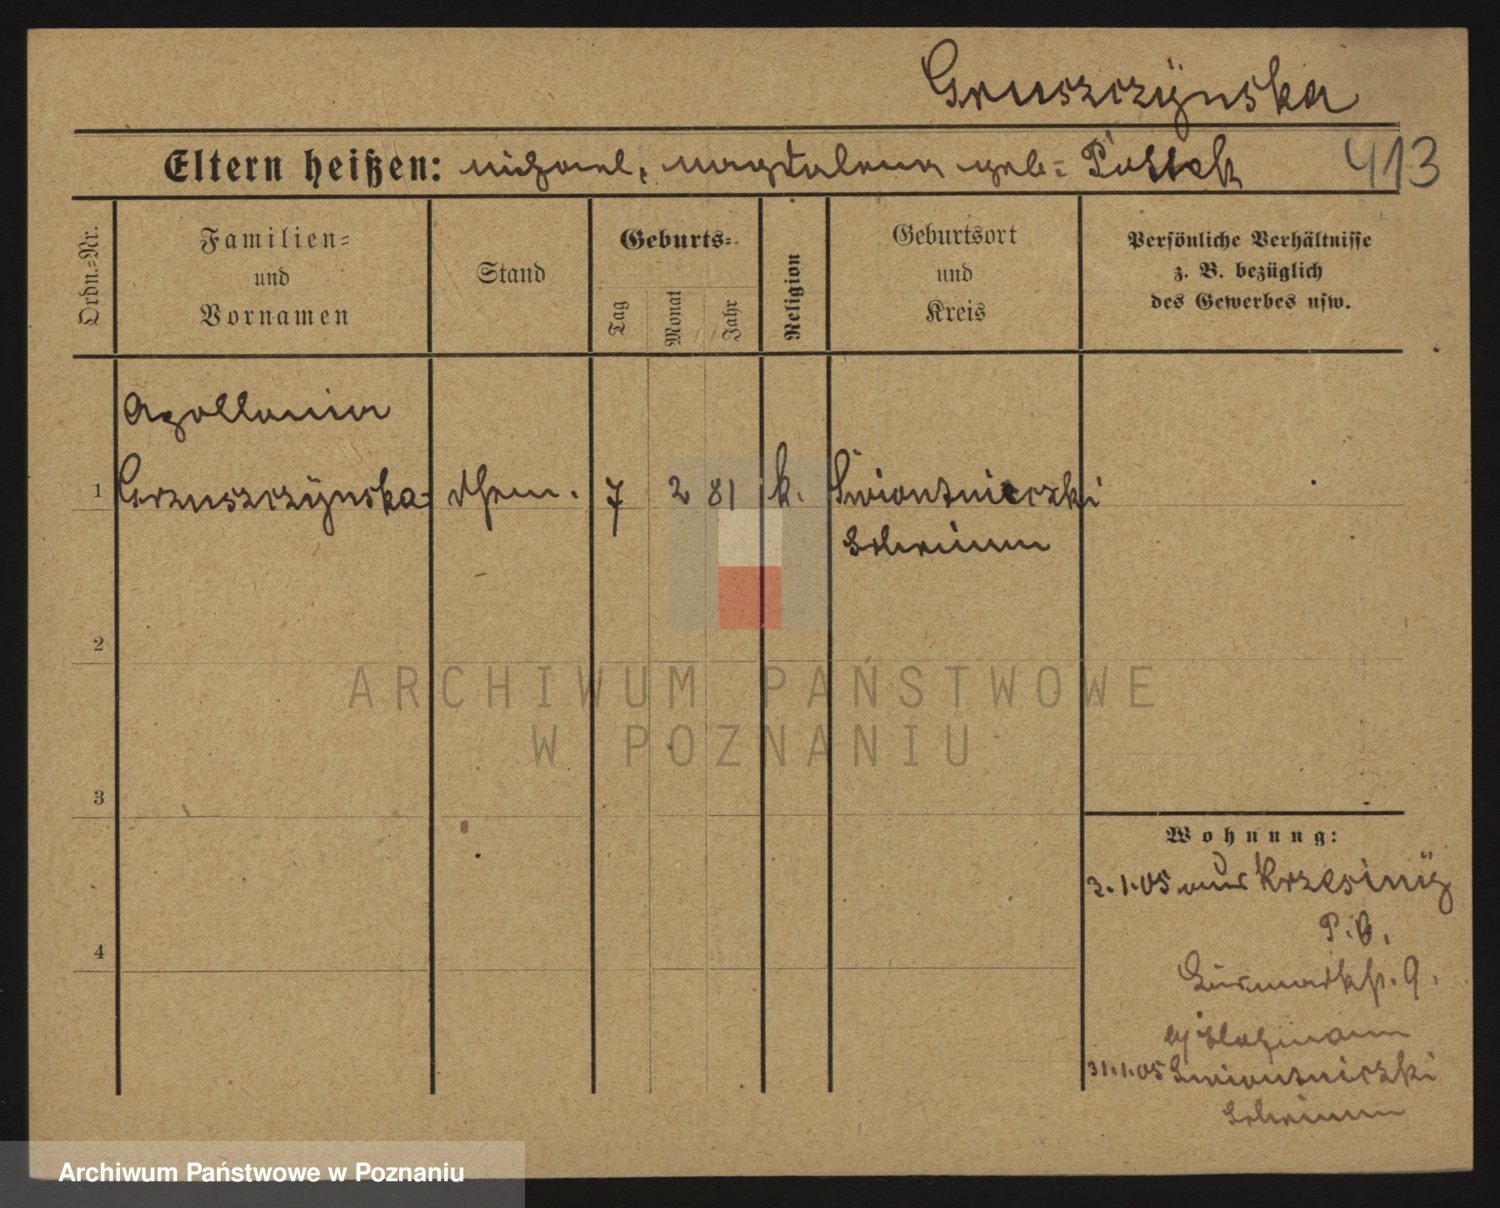 Gruszczÿnska
Eltern heißen: Michael, Magdalena geb: Pollak 413
Ordn.-Nr.
Familien-
und
Vornamen
Stand
Geburts-
Tag
Monat
Jahr
Religion
Geburtsort
und
Kreis
Persönliche Verhältnisse
z. B. bezüglich
des Gewerbes usw.
Apollonia
1 Gruszczÿnska 7 2 81 k. Swiontniczki
Schrimm
2
3
4
Wohnung:
2.1.05 aus Krzesinÿ
P.O.
9.
31.1.05 Swiontniczki
Schrimm
ARCHIWUM PAŃSTWOWE
W POZNANIU
Archiwum Państwowe w Poznaniu